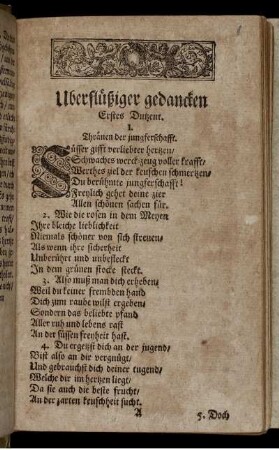 Uberflüßiger gedancken
Erstes Dutzent.
I.
Thränen der jungferschafft.
Süsser gifft verliebter hertzen/
Schwaches werck-zeug voller krafft/
Werthes ziel der keuschen schmertzen/
Du berühmte jungferschafft!
Freylich gehet deine zier
Allen schönen sachen für.
2. Wie die rosen in dem Meyen
Ihre bleiche lieblichkeit
Niemals schöner von sich streuen/
Als wenn ihre sicherheit
Unberührt und unbefleckt
In dem grünen stocke steckt.
3. Also muß man dich erheben/
Weil du keiner frembden hand
Dich zum raube wilst ergeben/
Sondern das beliebte pfand
Aller ruh und lebens rast
An der süssen freyheit hast.
4. Du ergetzst dich an der jugend/
Bist also an dir vergnügt/
Und gebrauchst dich deiner tugend/
Welche dir im hertzen liegt/
Da sie auch die beste frucht/
An der zarten keuschheit sucht.
A 5. Doch